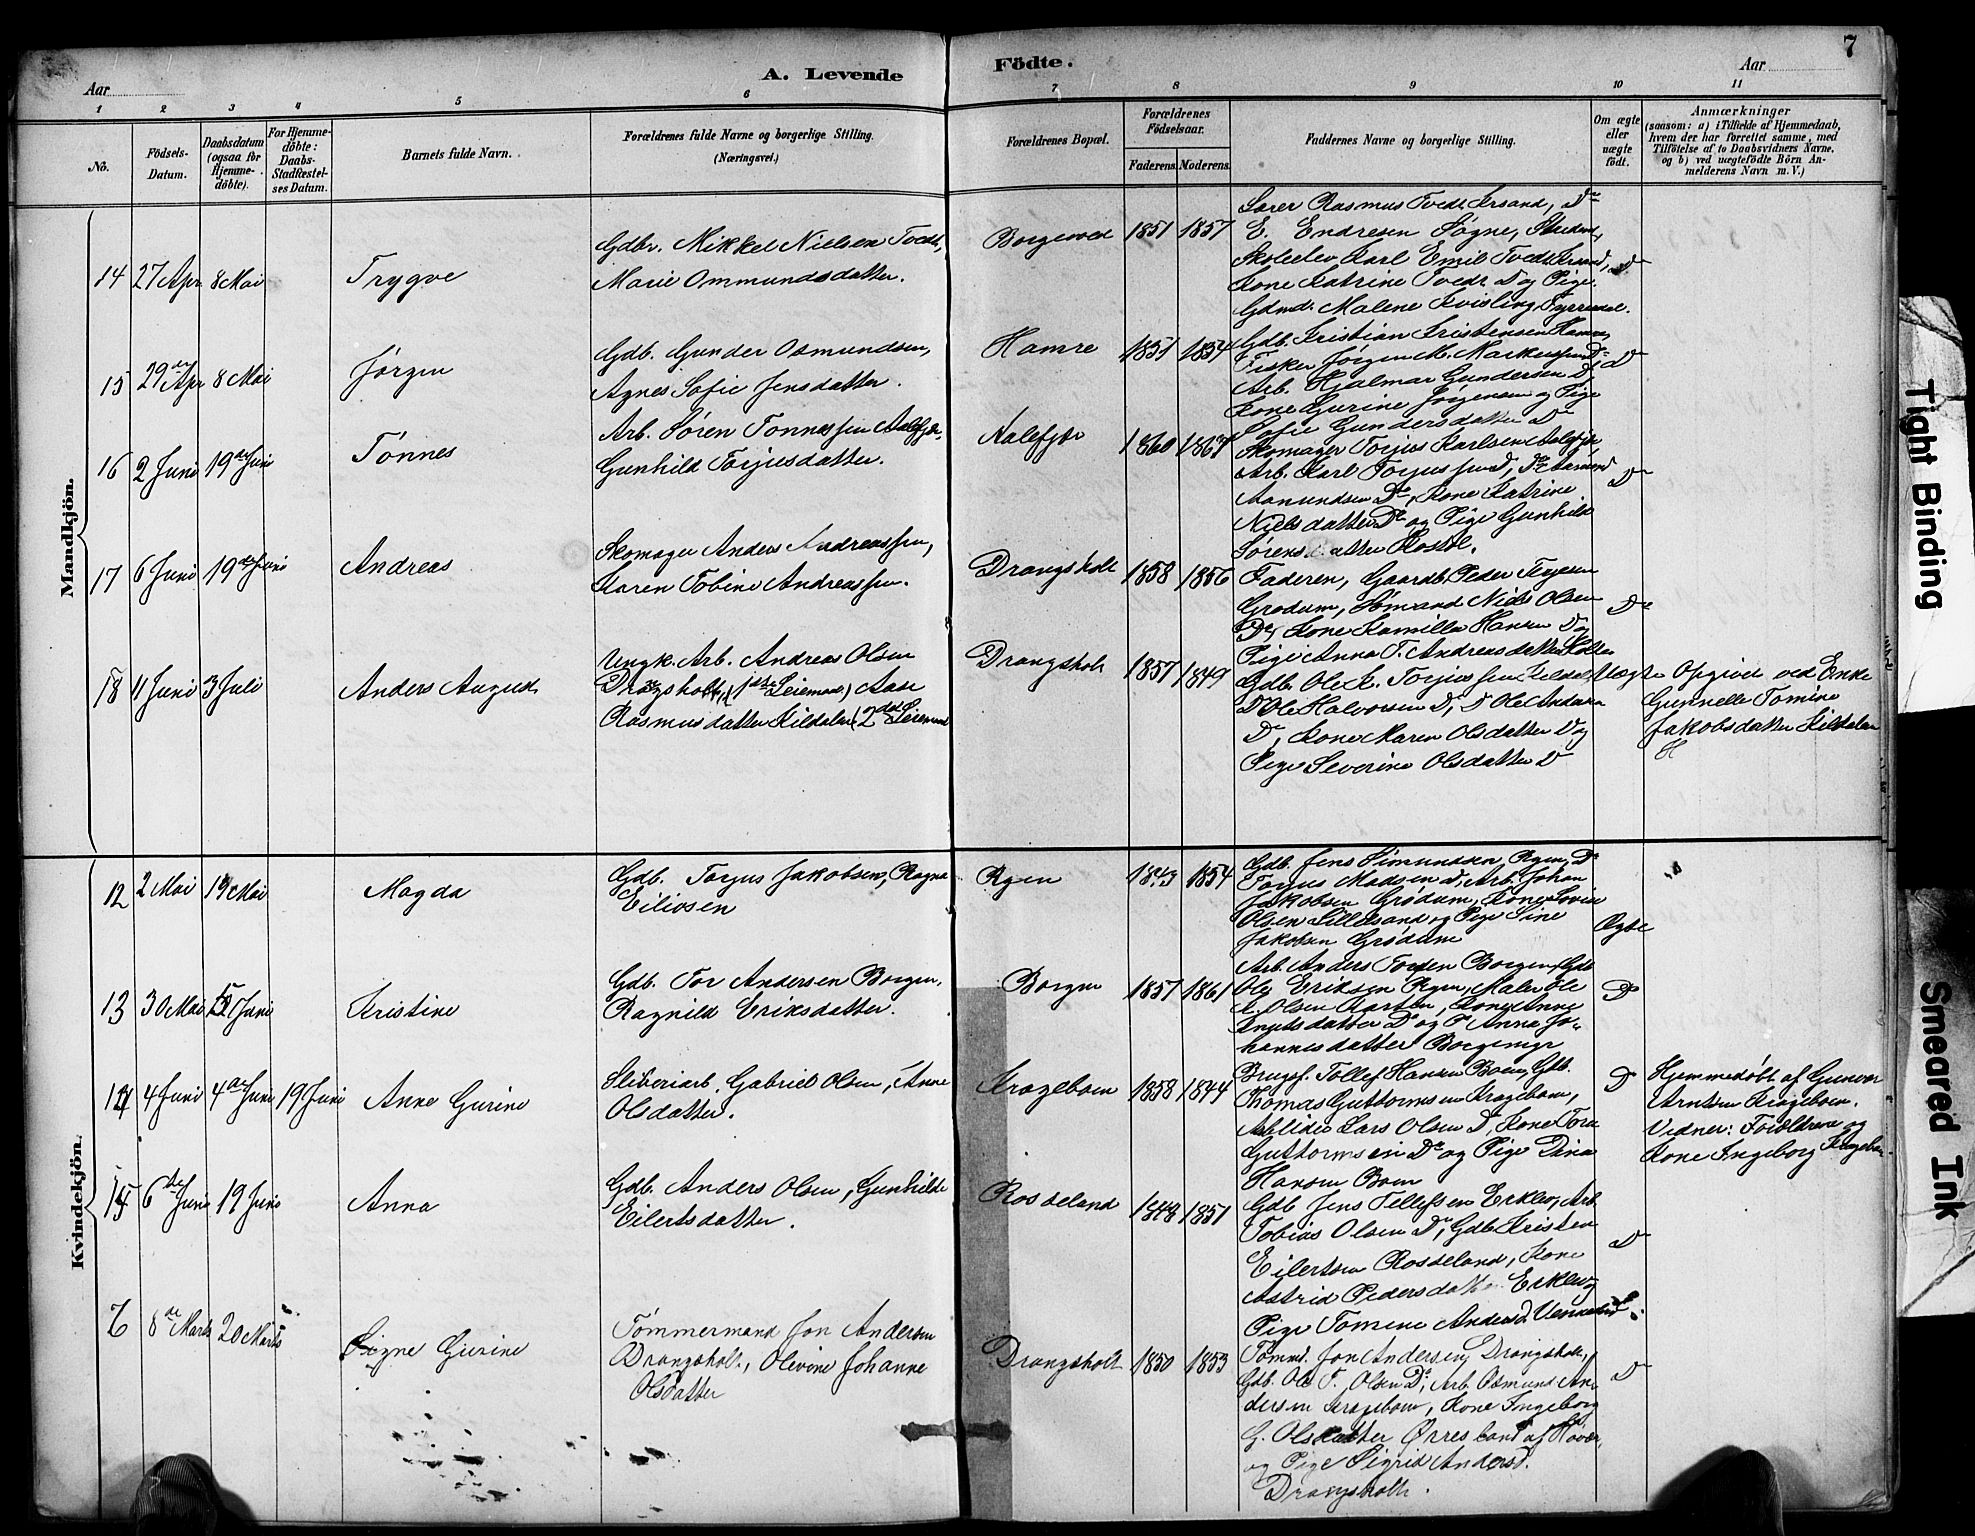 7
A. Levende Födte.
Aar
Aar
1 2 3 4 5 6 7 8 9 10 11
No.
Födsels-Datum.
Daabsdatum (ogsaa for Hjemme-döbte).
For Hjemme-döbte: Daabs-Stadfæstel-ses Datum.
Barnets fulde Navn.
Forældrenes fulde Navne og borgerlige Stilling. (Næringsvei.)
Forældrenes Bopæl.
Forældrenes Födselsaar.
Faderens. Moderens.
Faddernes Navne og borgerlige Stilling.
Om ægte eller uægte födt.
Anmærkninger
(saasom: a) i Tilfælde af Hjemmedaab,
hvem der har forrettet samme, med
Tilföielse af to Daabsvidners Navne,
og b) ved uægtefödte Börn An-
melderens Navn m. V.)
Mandkjön.
14 27 Apr 8 Mai Trygve
Gdbr. Mikkel Nielsen Tvedt,
Marie Ommundsdatter.
Borgeved 1851 1857
Rasmus Tvedt Krsand, Do
E. Endresen Søgne, Student,
Skoleelev Karl Emil Tvedt Krsand,
Kone Katrine Tvedt D og Pige
Gdmd. Malene Kvisling Fyrresdal.
Do
15 29de Apr 8 Mai Jørgen
Gdb. Gunder Osmundsen,
Agnes Sofie Jensdatter.
Hamre 1851 1854
Gdb. Kristian Kristensen Hamre,
Fisker Jørgen M. Markussen Do
Arb. Hjalmar Gundersen D,
Kone Gurine Jørgensen og Pige
Sofie Gundersdatter D
Do
16 2 Juni 19de Juni Tønnes
Arb. Søren Tønnessen Aalefjær,
Gunhild Torjusdatter.
Aalefjær 1860 1867
Skomager Torjus Karlsen Aalefjær,
Arb. Karl Torjussen D, Do Aamund
Aamundsen Do, Kone Katrine
Nielsdatter Do og Pige Gunhild
Sørensdatter Rostøl.
Do
17 6 Juni 19de Juni Andreas
Skomager Anders Andreassen,
Karen Tobine Andreassen.
Drangsholt 1858 1856
Faderen, Gaardb. Peder Terjesen
Grødum, Sømand Niels Olsen
Do, Kone Kamilla Hansen D og
Pige Anna T. Andreasdatter
Do
18 11 Juni 3 Juli Anders August
Ungk. Arb. Andreas Olsen
Drangsholt, (1ste Leiermaal) Aase
Rasmusdatter Kildalen (2det Leiermaal
Drangsholt 1857 1849
Gdb. Ole K. Torjussen Kildalen,
D Ole Halvorsen D, D Ole Andersen
D, Kone Maren Olsdatter D og
Pige Severine Olsdatter D
Uægte
Opgivet ved Enke
Gunnelle Tomine
Jakobsdatter Kildalen
H
Kvindekjön.
12 2 Mai 19 Mai Magda
Gdb. Torjus Jakobsen, Ragna
Eilivsen
Rgen 1843 1854
Gdb. Jens Simundsen, Rgen, Do
Torjus Madsen D, Arb. Johan
Jakobsen Grødum, Kone Lovise
Olsen Lillesand og Pige Sine
Jakobsen Grødum
Ægte
13 30 Mai Juni Kristine
Gdb. Tor Andersen Borgen,
Ragnild Eriksdatter.
Borgen 1857 1861
Arb. Anders Torsen Borgen, Gdb.
Ole Eriksen Rgen, Maler Ole
K. Olsen Aarsten, Kone Anne
Knutsdatter Do og P Anna Jo-
hannesdatter Borgemyr
Do
14 4 Juni 4de Juni 19 Juni Anne Gurine
Sliberiarb. Gabriel Olsen, Anne
Olsdatter.
Kragebom 1858 1844
Brugsf. Tollef Hansen Boen, Gdb.
Thomas Guttormsen Kragebom,
Lars Olsen D, Kone Tora
Guttormsen Do og Pige Dina
Hansen Boen
D
Hjemmedøbt af Gunvor
Arntsen Kragebom.
Vidner: Forældrene og
Kone Ingeborg Kragebom
15 6te Juni 19 Juni Anna
Gdb. Anders Olsen, Gunhilde
Eilertsdatter.
Rosseland 1848 1851
Gdb Jens Tellefsen Erklev, Arb
Tobias Olsen Do, Gdb Kristen
Eilertsen Rosseland, Kone
Astrid Pedersdatter Erklev og
Pige Tomine Andersd
Do
8de Marts 20 Marts Signe Gurine
Tømmermand Jon Andersen
Drangsholt, Olevine Johanne
Olsdatter
Drangsholt 1850 1853
Tømmd. Jon Andersen, Drangsholt,
Gdb. Ole T. Olsen Do, Arb. Osmund An-
dersen Kragebom, Kone Ingeborg
G. Olsdatter Ørresland af Høvåg,
og Pige Sigrid Andersd.
Drangsholt.
D
Tight Binding
Smeared Ink